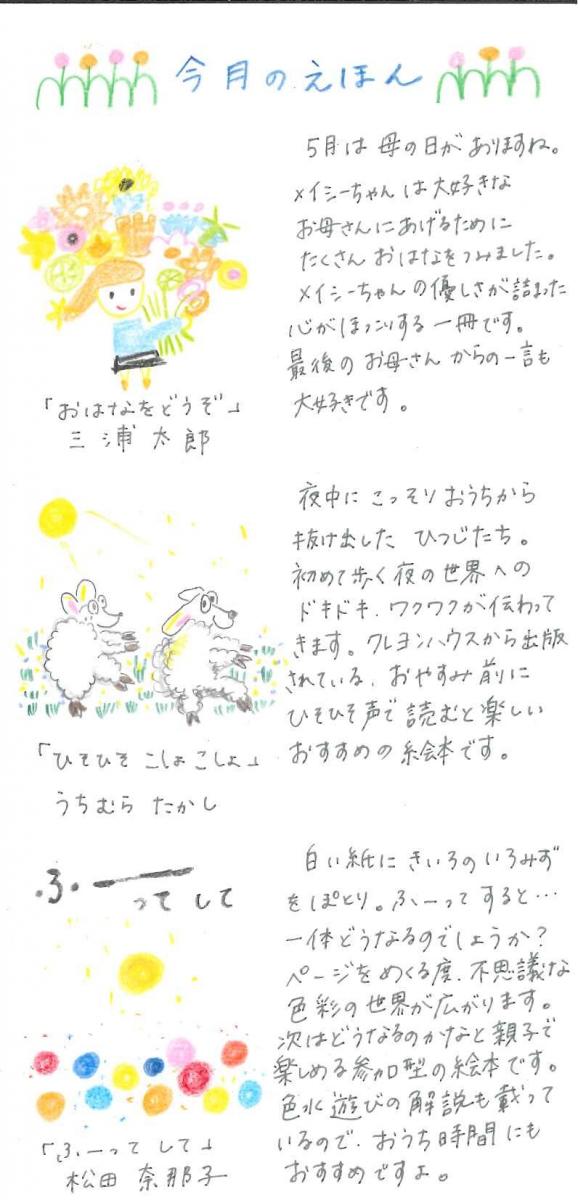 今月のえほん
5月は母の日がありますね。
メイシーちゃんは大好きな
お母さんにあげるために
たくさんおはなをつみました。
メイシーちゃんの優しさが詰まった
心がほっこりする一冊です。
最後のお母さんからの一言も
大好きです。
「おはなをどうぞ」
三浦太郎
夜中にこっそりおうちから
抜け出したひつじたち。
初めて歩く夜の世界への
ドキドキ、ワクワクが伝わって
きます。クレヨンハウスから出版
されている、おやすみ前に
ひそひそ声で読むと楽しい
おすすめの絵本です。
「ひそひそこしょこしょ」
うちむら たかし
ふーって して
白い紙にきいろのいろみず
をぽとり。ふーってすると…
一体どうなるのでしょうか?
ページをめくる度、不思議な
色彩の世界が広がります。
次はどうなるのかなと親子で
楽しめる参加型の絵本です。
色水遊びの解説も載って
いるので、おうち時間にも
おすすめですよ。
「ふーって して」
松田 奈那子